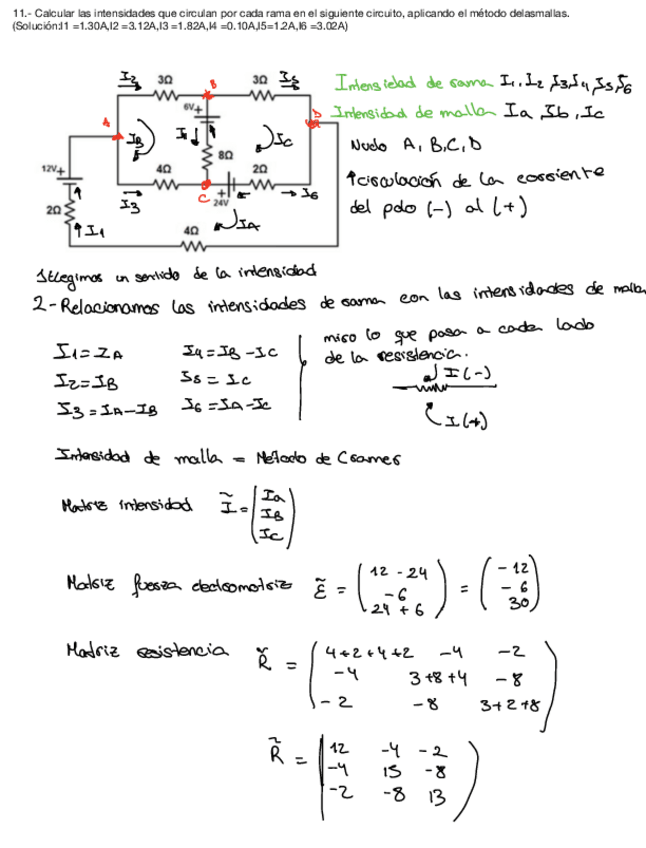 11.- Calcular las intensidades que circulan por cada rama en el siguiente circuito, aplicando el método delasmallas.
(Solución:I1 =1.30A,I2 =3.12A,I3 =1.82A,I4 =0.10A,I5=1.2A,I6 =3.02A)
I2 3Ω B 3Ω I5
6V+
A IB I4 IC D
8Ω
12V+ 4Ω 2Ω
I3 C + 24V I6
2Ω I1 IA
4Ω
Intensidad de rama I1, I2, I3, I4, I5, I6
Intensidad de malla Ia, Ib, Ic
Nudo A, B, C, D
↑circulación de la corriente
del polo (-) al (+)
1Elegimos un sentido de la intensidad
2-Relacionamos las intensidades de rama con las intensidades de malla
I1 = IA I4 = IB - IC
I2 = IB I5 = IC
I3 = IA - IB I6 = IA - IC
miro lo que pasa a cada lado
de la resistencia.
I (-)
I (+)
Intensidad de malla = Método de Cramer
Matriz intensidad Ĩ = (Ia
IB
Ic)
Matriz fuerza electromotriz ε̃ = (12 - 24
- 6
24 + 6) = (- 12
- 6
30)
Matriz resistencia R̃ = (4+2+4+2 -4 -2
-4 3+8+4 -8
-2 -8 3+2+8)
R̃ = (12 -4 -2
-4 15 -8
-2 -8 13)